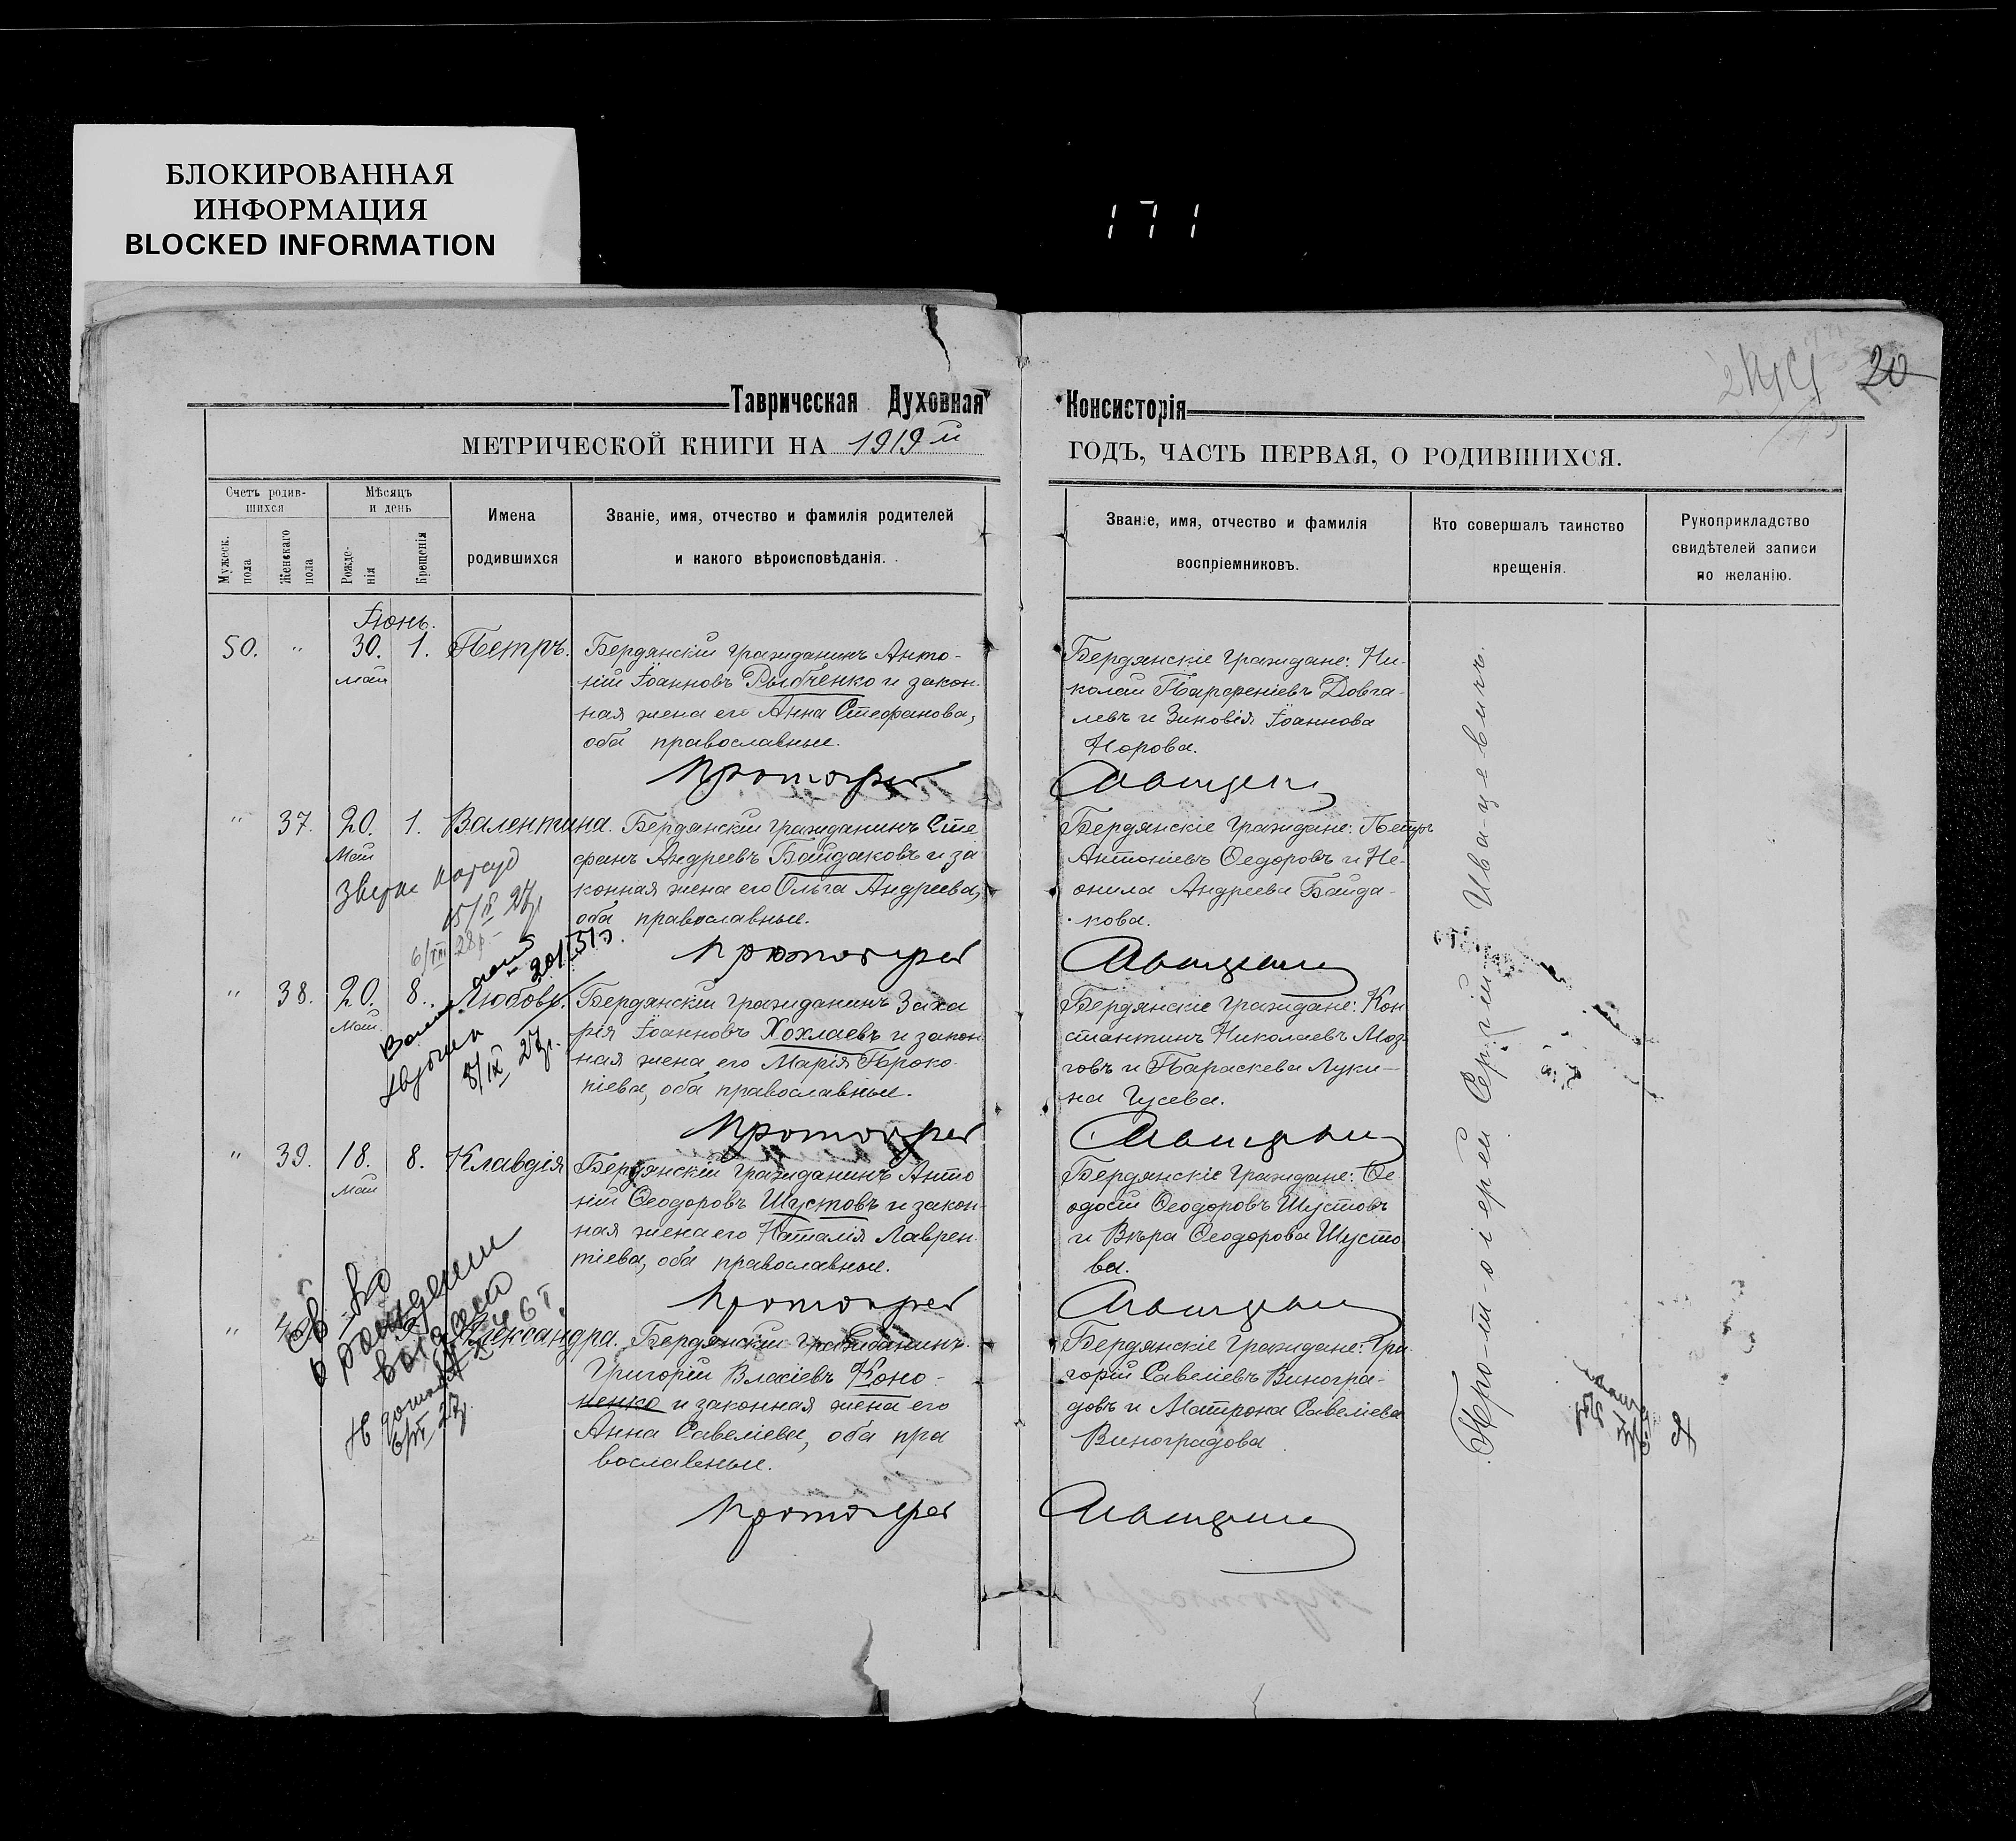 БЛОКИРОВАННАЯ
ИНФОРМАЦИЯ
BLOCKED INFORMATION
171
20
Таврическая Духовная Консисторія
МЕТРИЧЕСКОЙ КНИГИ НА 1919й ГОДЪ, ЧАСТЬ ПЕРВАЯ, О РОДИВШИХСЯ.
Счетъ родив-
шихся
Мужеск. пола
Женскаго пола
Мѣсяцъ
и день
Рожде-
нія
Крещенія
Имена
родившихся
Званіе, имя, отчество и фамилія родителей
и какого вѣроисповѣданія.
Званіе, имя, отчество и фамилія
воспріемниковъ.
Кто совершалъ таинство
крещенія.
Рукоприкладство
свидѣтелей записи
по желанію.
Іюнь.
50. " 30. 1. Петръ.
май
Бердянскій гражданинъ Анто-
ній Іоанновъ Рыбченко и закон-
ная жена его Анна Стефанова,
оба православные.
Бердянскіе граждане: Ни-
колай Парфеніевъ Довга-
левъ и Зиновія Іоаннова
Норова.
Протоиерей
" 37. 20. 1. Валентина.
Май
Бердянскій гражданинъ Сте
фанъ Андреевъ Байдаковъ и за
конная жена его Ольга Андреева,
оба православные.
Бердянскіе граждане: Петръ
Антоніевъ Ѳедоровъ и Не-
онила Андреева Байда-
кова.
15/IX 27г.
6/VIII 28р.
Протоиерей
" 38. 20. 8. Любовь.
Май.
Бердянскій гражданинъ Заха
рія Іоанновъ Хохлаевъ и закон
ная жена его Марія Проко-
піева, оба православные.
Бердянскіе граждане: Кон
стантинъ Николаевъ Моз-
говъ и Параскева Луки-
на Гусева.
8/IX 27г.
Протоиерей
" 39. 18. 8. Клавдія
Май
Бердянскій гражданинъ Анто
ній Ѳеодоровъ Шустовъ и закон-
ная жена его Наталія Лаврен-
тіева, оба православные.
Бердянскіе граждане: Ѳе
одосій Ѳеодоровъ Шустовъ
и Вѣра Ѳеодорова Шусто
ва.
Протоиерей
Св-во
о рождении
" Александра.
Бердянскій гражданинъ
Григорій Власіевъ Коно-
ненко и законная жена его
Анна Савеліева, оба пра
вославные.
Бердянскіе граждане: Гри
горій Савеліевъ Виногра-
довъ и Матрона Савеліева
Виноградова
Протоиерей
Про-т-о-іерей Сергій Ива-ц-е-в-и-чъ.